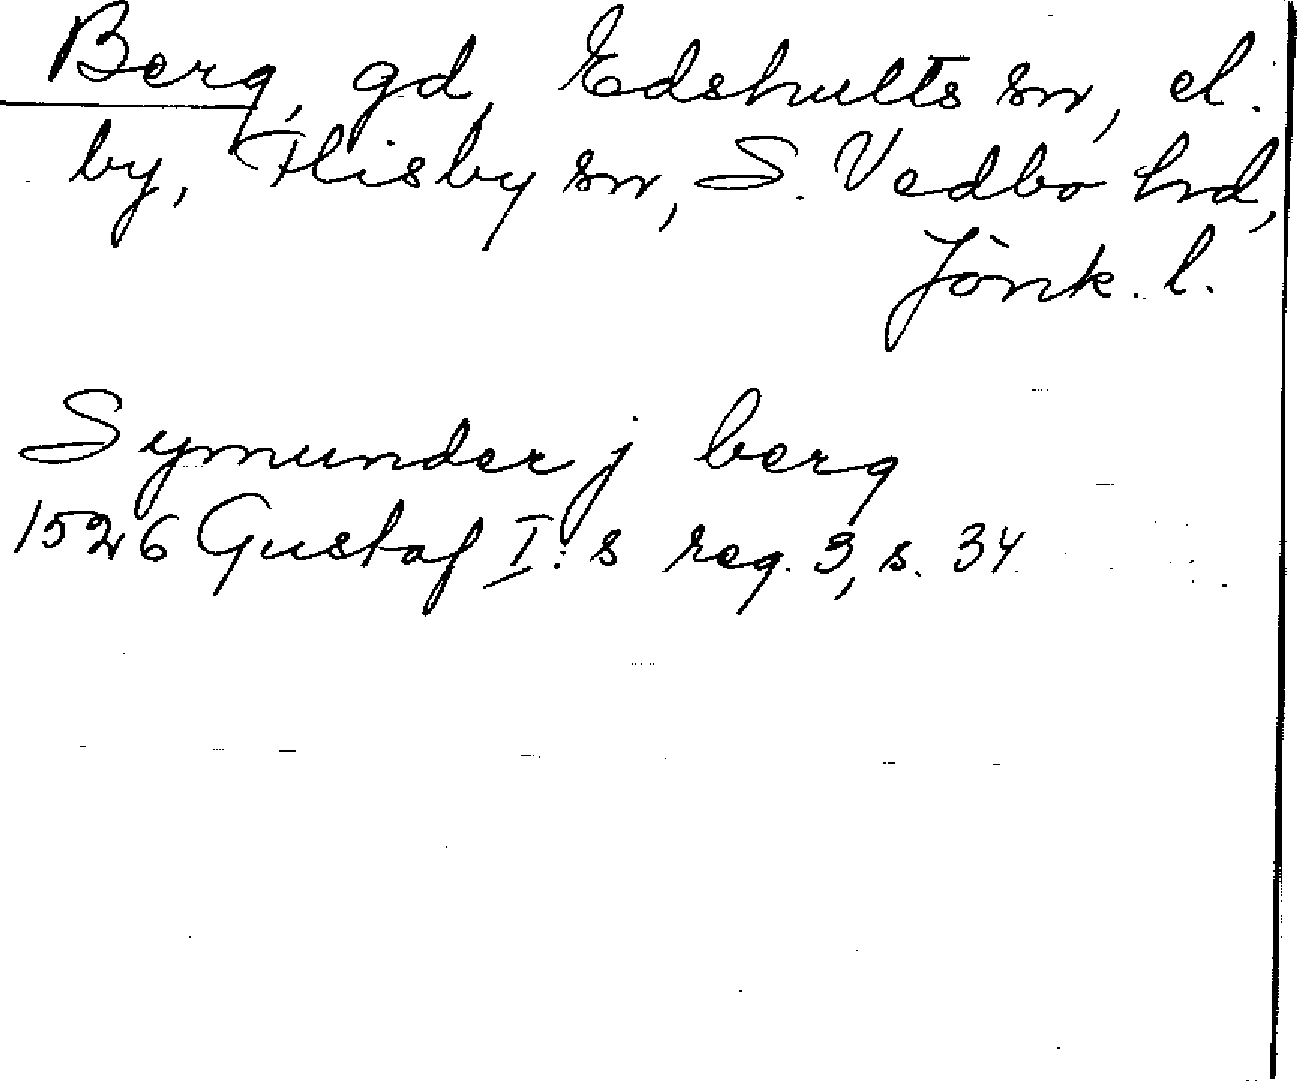 Berg, gd, Edshults sn, el.
by, Flisby sn, S. Vedbo hrd,
Jönk. l.
Symunder j berg
1526 Gustaf I:s reg. 3, s. 34